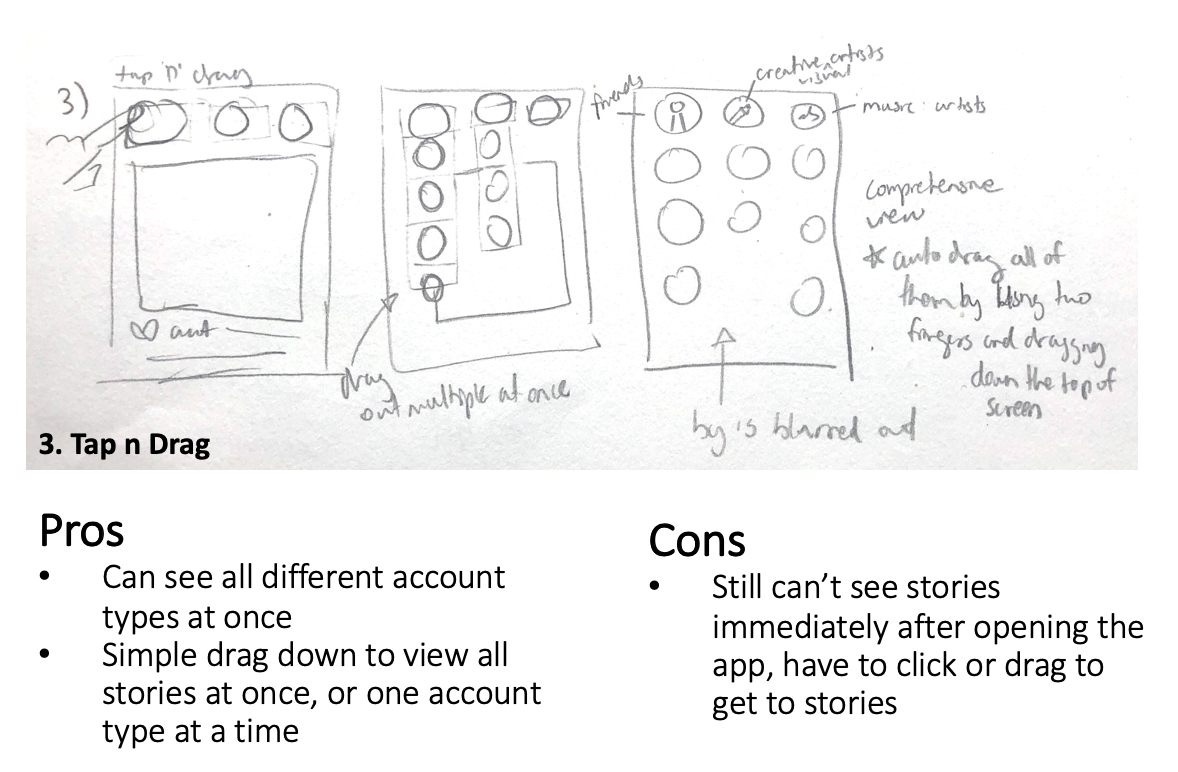 3)
tap 'n' drag
friends
creative artists
visual
music artists
comprehensive
view
* auto drag all of
them by using two
fingers and dragging
down the top of
screen
drag
out multiple at once
bg is blurred out
3. Tap n Drag
Pros
• Can see all different account
types at once
• Simple drag down to view all
stories at once, or one account
type at a time
Cons
• Still can’t see stories
immediately after opening the
app, have to click or drag to
get to stories